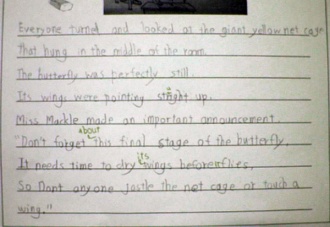 Everyone turned and looked at the giant yellow net cage
That hung in the middle of the room.
The butterfly was perfectly still.
Its wings were pointing straight up.
Miss Markle made an important announcement.
"Don't forget about this final stage of the butterfly.
It needs time to dry its wings before it flies,
So Dont anyone jostle the net cage or touch a
wing."